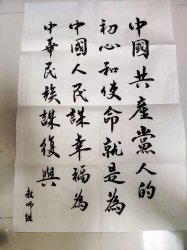 中國共產黨人的
初心和使命就是為
中國人民謀幸福為
中華民族謀復興